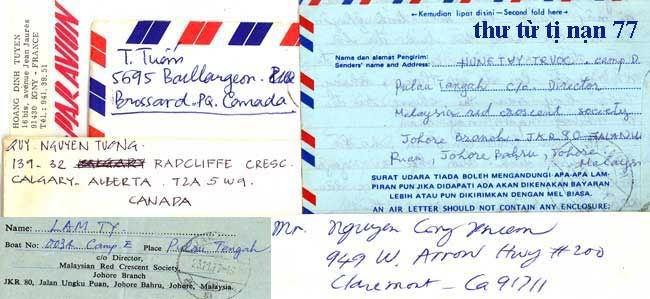 HOANG DINH TUYEN
16 bis, avenue Jean Jaurès
91430 IGNY - FRANCE
Tél.: 941.39.51
PAR AVION
T. Tuấn
5695 Baillargeon
Brossard P.Q. Canada
QUY NGUYEN TUONG.
139-32 CALGARY RADCLIFFE CRESC.
CALGARY - ALBERTA. T2A 5W9.
CANADA
thư từ tị nạn 77
Kemudian lipat disini — Second fold here
Nama dan alamat Pengirim:
Senders' name and Address:
HUNG THY TRUC camp D.
Pulau Tengah c/o Director
Malaysia red crescent society
Johore Branch - JKR 80 JALAN
Puan, Johore Bahru, Johore
Malaysia
SURAT UDARA TIADA BOLEH MENGANDUNGI APA-APA LAM-
PIRAN PUN JIKA DIDAPATI ADA AKAN DIKENAKAN BAYARAN
LEBIH ATAU PUN DIKIRIMKAN DENGAN MEL BIASA.
AN AIR LETTER SHOULD NOT CONTAIN ANY ENCLOSURE;
Name: LAM TY.
Boat No: 003A Camp E Place Pulau Tengah
c/o Director,
Malaysian Red Crescent Society,
Johore Branch
JKR. 80, Jalan Ungku Puan, Johore Bahru, Johore, Malaysia.
Mr. Nguyen Cong
949 W. Arrow Hwy #200
Claremont - Ca 91711